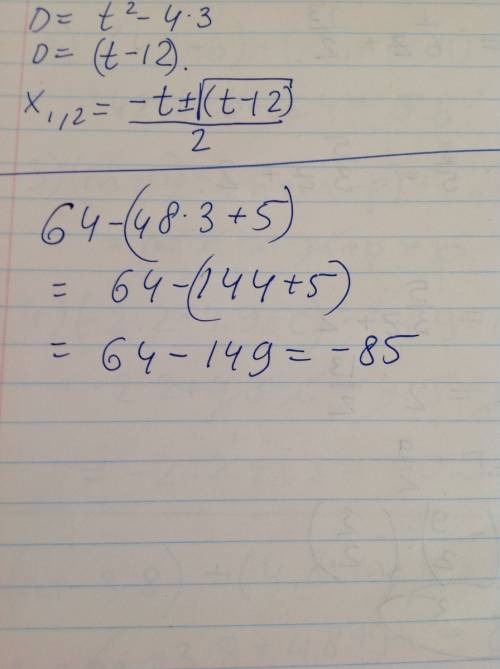 D = t² - 4·3
D = (t-12).
x₁,₂ = (-t±√(t-12))/2
64-(48·3+5)
= 64-(144+5)
= 64-149 = -85